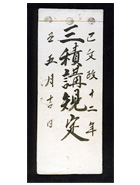 己文政十二年
三積講規定
丑五月吉日